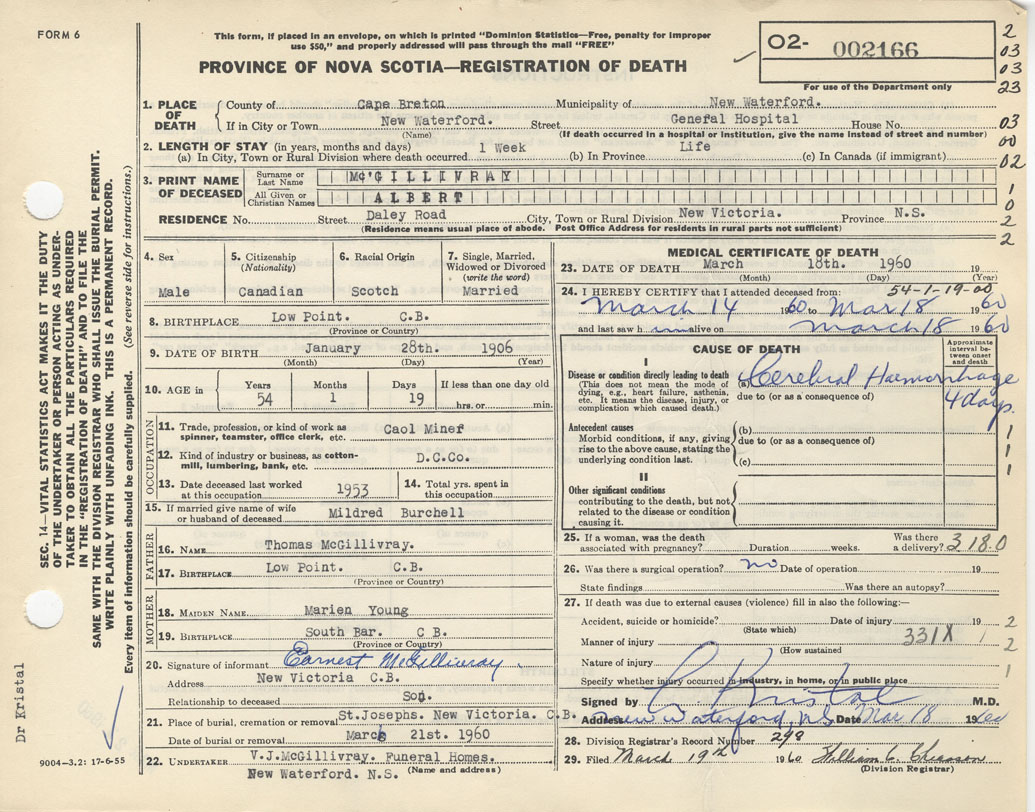 FORM 6
This form, if placed in an envelope, on which is printed "Dominion Statistics—Free, penalty for improper
use $50," and properly addressed will pass through the mail "FREE"
PROVINCE OF NOVA SCOTIA—REGISTRATION OF DEATH
O2- 002166
For use of the Department only
2
03
03
23
03
00
02
1
0
2
2
1. PLACE OF DEATH
County of Cape Breton Municipality of New Waterford.
If in City or Town New Waterford. Street Genefal Hospital House No.
(Name) (If death occurred in a hospital or institution, give the name instead of street and number)
2. LENGTH OF STAY (in years, months and days)
(a) In City, Town or Rural Division where death occurred 1 Week (b) In Province Life (c) In Canada (if immigrant)
3. PRINT NAME OF DECEASED
Surname or Last Name MC'GILLIVRAY
All Given or Christian Names ALBERT
RESIDENCE No. Street Daley Road City, Town or Rural Division New Victoria. Province N.S.
(Residence means usual place of abode. Post Office Address for residents in rural parts not sufficient)
4. Sex
Male
5. Citizenship (Nationality)
Canadian
6. Racial Origin
Scotch
7. Single, Married, Widowed or Divorced (write the word)
Married
8. BIRTHPLACE Low Point. C.B.
(Province or Country)
9. DATE OF BIRTH January 28th. 1906
(Month) (Day) (Year)
10. AGE in
Years Months Days If less than one day old
54 1 19 hrs. or min.
OCCUPATION
11. Trade, profession, or kind of work as spinner, teamster, office clerk, etc. Caol Minef
12. Kind of industry or business, as cotton-mill, lumbering, bank, etc. D.C.Co.
13. Date deceased last worked at this occupation 1953
14. Total yrs. spent in this occupation
15. If married give name of wife or husband of deceased Mildred Burchell
FATHER
16. NAME Thomas McGillivray.
17. BIRTHPLACE Low Point. C.B.
(Province or Country)
MOTHER
18. MAIDEN NAME Marien Young
19. BIRTHPLACE South Bar. C B.
(Province or Country)
20. Signature of informant Earnest McGillivray.
Address New Victoria C.B.
Relationship to deceased Son.
21. Place of burial, cremation or removal St.Josephs. New Victoria. C.B.
Date of burial or removal March 21st. 1960
22. UNDERTAKER V.J.McGillivray. Funeral Homes.
New Waterford. N.S. (Name and address)
MEDICAL CERTIFICATE OF DEATH
23. DATE OF DEATH March 18th. 1960 19
(Month) (Day) (Year)
54-1-19-00
24. I HEREBY CERTIFY that I attended deceased from:
March 14 1960 to Mar 18 1960
and last saw h im alive on March 18 1960
CAUSE OF DEATH
Approximate interval between onset and death
I
Disease or condition directly leading to death
(This does not mean the mode of dying, e.g., heart failure, asthenia, etc. It means the disease, injury, or complication which caused death.)
(a) Cerebral Haemorrhage
due to (or as a consequence of)
4 days.
Antecedent causes
Morbid conditions, if any, giving rise to the above cause, stating the underlying condition last.
(b)
due to (or as a consequence of)
(c)
1
1
1
II
Other significant conditions
contributing to the death, but not related to the disease or condition causing it.
25. If a woman, was the death associated with pregnancy? Duration weeks. Was there a delivery? 3 18.0
26. Was there a surgical operation? no Date of operation 19
State findings Was there an autopsy?
27. If death was due to external causes (violence) fill in also the following:—
Accident, suicide or homicide? Date of injury 19 2
(State which)
Manner of injury 331X 1 2
(How sustained
Nature of injury 1
Specify whether injury occurred in industry, in home, or in public place
Signed by C Kristal M.D.
Address New Waterford, NS Date Mar 18 1960
28. Division Registrar's Record Number 298
29. Filed March 19th 1960 William
(Division Registrar)
SEC. 14—VITAL STATISTICS ACT MAKES IT THE DUTY
OF THE UNDERTAKER OR PERSON ACTING AS UNDER-
TAKER TO OBTAIN ALL THE PARTICULARS REQUIRED
IN THE "REGISTRATION OF DEATH" AND TO FILE THE
SAME WITH THE DIVISION REGISTRAR WHO SHALL ISSUE THE BURIAL PERMIT.
WRITE PLAINLY WITH UNFADING INK. THIS IS A PERMANENT RECORD.
Every item of information should be carefully supplied. (See reverse side for instructions.)
Dr Kristal
9004—3.2: 17-6-55